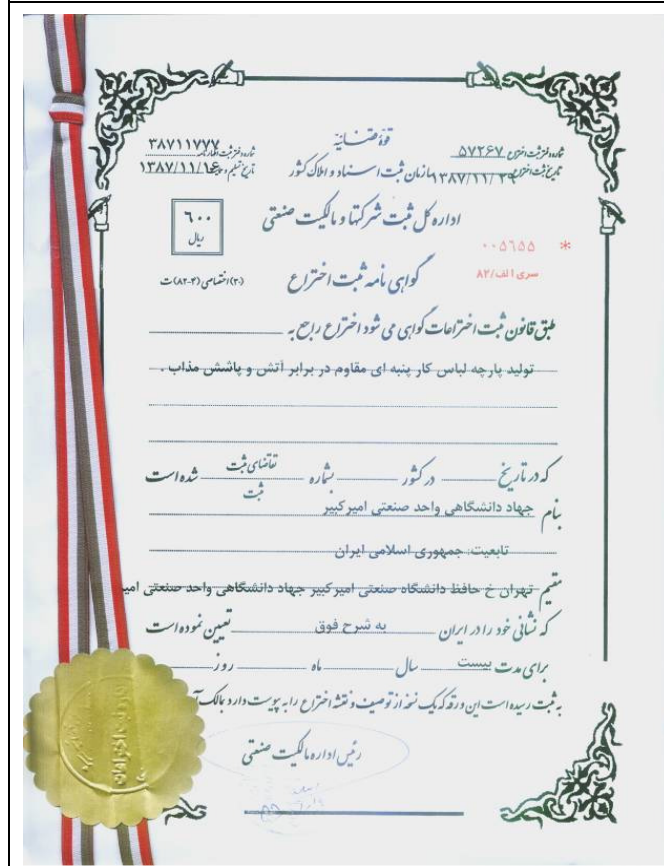 قوه قضائیه
شماره دفتر ثبت اختراع ۵۷۲۶۷
شماره دفتر ثبت اظهارنامه ۳۸۷۱۱۷۷۷
تاریخ ثبت اختراع ۱۳۸۷/۱۱/۲۹
سازمان ثبت اسناد و املاک کشور
تاریخ تسلیم ۱۳۸۷/۱۱/۱۶
اداره کل ثبت شرکتها و مالکیت صنعتی
۶۰۰
ریال
* ۰۰۵۶۵۵
سری الف/۸۲
گواهی نامه ثبت اختراع
(۳۰) اختصاصی (۴-۸۲) ت
طبق قانون ثبت اختراعات گواهی می شود اختراع راجع به
تولید پارچه لباس کار پنبه ای مقاوم در برابر آتش و پاشش مذاب .
که در تاریخ در کشور بشماره تقاضای ثبت شده است
ثبت
بنام جهاد دانشگاهی واحد صنعتی امیرکبیر
تابعیت: جمهوری اسلامی ایران
مقیم تهران خ حافظ دانشگاه صنعتی امیرکبیر جهاد دانشگاهی واحد صنعتی امیر
که نشانی خود را در ایران به شرح فوق تعیین نموده است
برای مدت بیست سال ماه روز
به ثبت رسیده است این ورقه که یک نسخه از توصیف و نقشه اختراع را به پیوست دارد بمالک آ
رئیس اداره مالکیت صنعتی